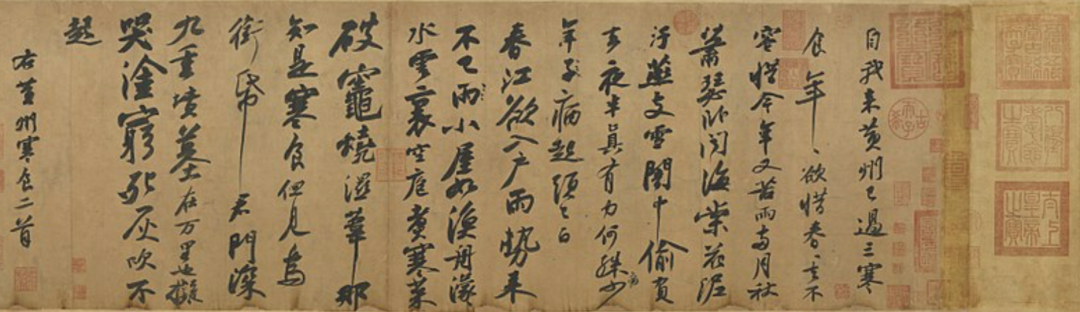 自我來黃州已過三寒
食年、欲惜春、去不
容惜今年又苦雨兩月秋
蕭瑟臥聞海棠花泥
污燕支雪闇中偷負
去夜半真有力何殊病少
年子病起須已白
春江欲入戶雨勢來
不已雨小屋如漁舟濛、
水雲裏空庖煮寒菜
破竈燒濕葦那
知是寒食但見烏
銜帋君門深
九重墳墓在萬里也擬
哭塗窮死灰吹不
起
右黃州寒食二首